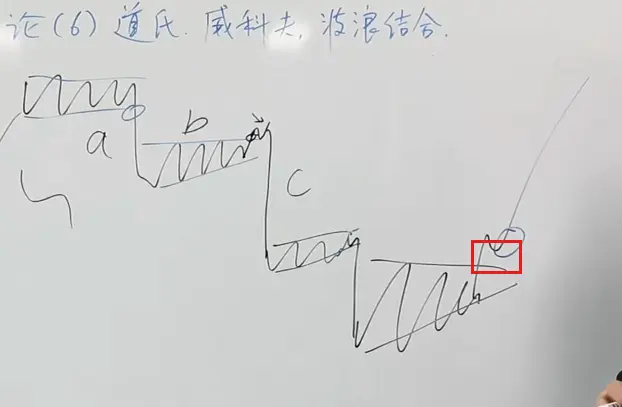 论(6)道氏.威科夫,波浪结合.
a
b
c